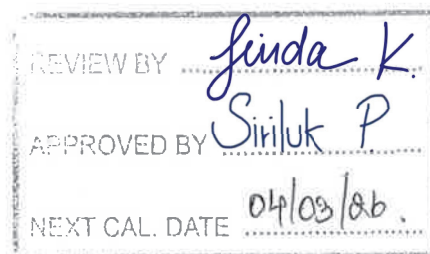 REVIEW BY Jinda K.
APPROVED BY Siriluk P
NEXT CAL. DATE 04/03/26.